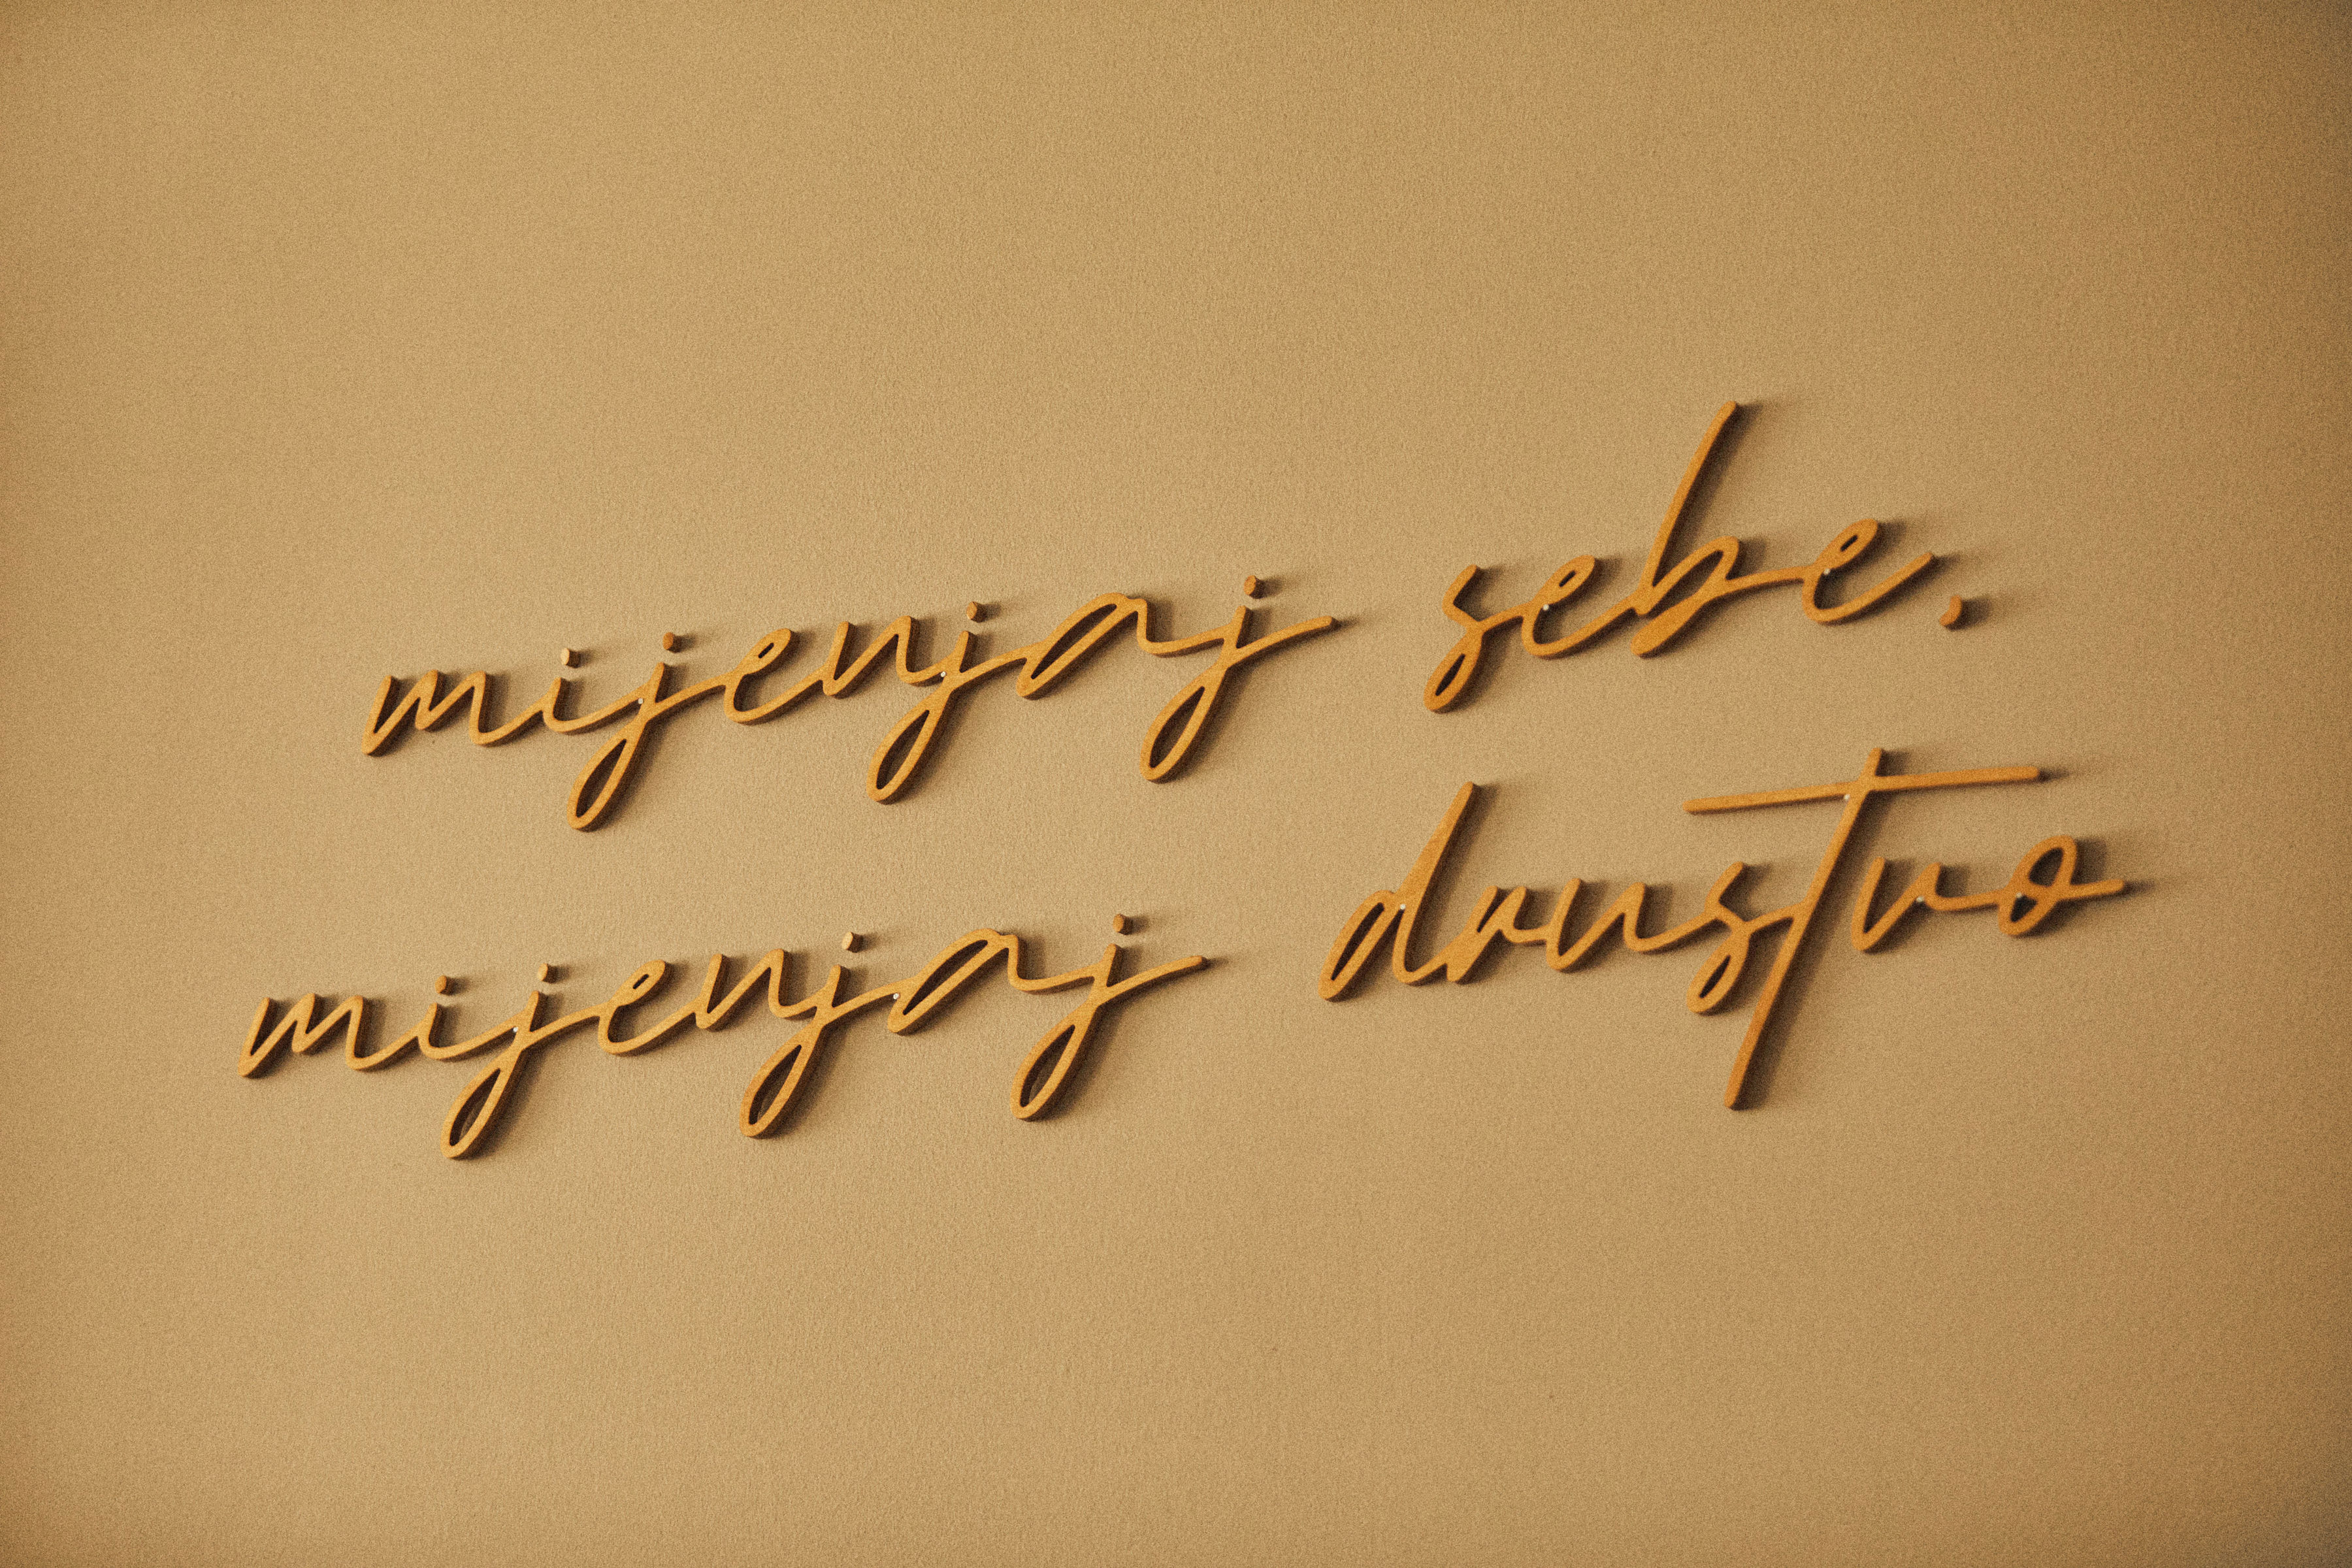 mijenjaj sebe.
mijenjaj drustvo